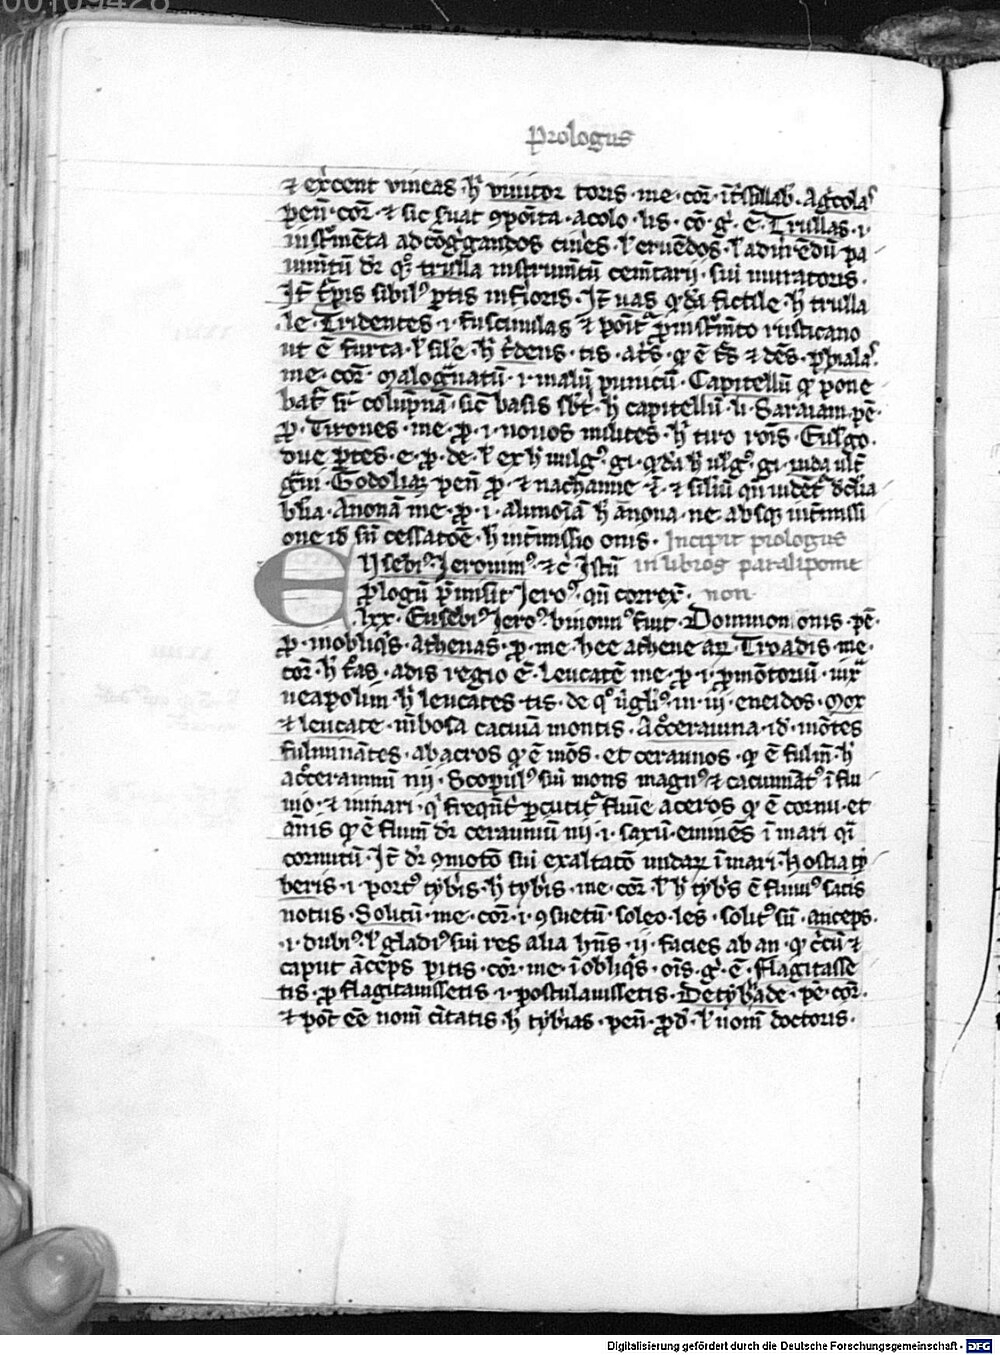 00109428
Prologus
⁊ exc̄ent vineas · h̄ vinitor toris · me · cor̄ · it̄ sillab̄ · Agͥcolaˢ
pen̄ · cor̄ · ⁊ sic fuat ꝯpoīta · acolo · lis · co · gͥ · ē · Trullas · i ·
inst̄menta ad cōgͥgandos cin̄es · l̄ eruēdos · l̄ ad
mn̄tū dr̄ qꝫ trulla instrumn̄tū cem̄tarij · siū muratoris ·
It̄ sibilꝰ ꝑtis inf̄ioris · It̄ uas qͦda fictile h̄ trulla
le · Tridentes · i · fuscinulas ⁊ poīt̄ ꝓ inst̄mento rusticano
ut ē furca · l̄ sil̄e · h̄ t̄dens · tis · a t̄s · qͦ ē t̄s ⁊ dēs · phialaˢ
me · cor̄ · Malogͣnatū · i · malū punicū · Capitellū qͦ pone
bat̄ sr̄ colūpnā · sic basis sbt̄ · h̄ capitellū · li · Saraiam · pē ·
ꝓ · Tirones · me · ꝓ · i · nouos milites · h̄ tiro rois · Eulgo ·
due ꝑtes · e · ꝓ · de · l̄ ex h̄ uulgꝰ gi · qͦda h̄ ulgꝰ · gi · inda ult̄
gͣui · Godoliaꝫ pen̄ ꝓ · ⁊ nachanie · ⁊ filiū
Anonā me · ꝓ · i · alimoīam h̄ anona · ne absqꝫ int̄missi
one id sin̄ cessatōe · h̄ int̄missio onis · Incipit prologus
EUsebiꝰ Jeronimꝰ · ⁊c̄ Istū in libros paralipome
ꝓlogū p̄misit Jeroꝰ · qn̄ correx̄ · non ·
lxx · Eusebiꝰ Jeroꝰ binomiꝰ fuit · Domnion onis · pē ·
ꝓ · in obliqͥs · Athenas · ꝓ · me · hee athene aꝝ · Troadis · me ·
cor̄ · h̄ t̄as · adis regio ē · Leucatē me · ꝓ · i · ꝓmōtoriū · iuxͣ
neapolim h̄ leucates · tis · de qͦ uͥgilꝰ · in · iii · eneidos · Mox
⁊ leucate · nībosa cacuīa montis · Acͦceraunia · id · mōtes
fulminātes · ab acros qͦ ē mōs · et ceraunos · qͦ ē fulm̄ · h̄
acͦceraunium nij · Scopulꝰ siū mons magnꝰ ⁊ cacuminatꝰ ī flu
uio · ⁊ in mari · qͥ freqn̄t̄ ꝑcutit̄ flum̄e aceros qͦ ē cornu · et
amīs qͦ ē flum̄ dr̄ cerauniū nij · i · saxū · eminēs ī mari qͥ
cornutū · It̄ dr̄ ꝯmotō siū exaltatō undaꝝ ī mari · Hostia ty
beris · i · portꝰ tyb̄is · h̄ tyb̄is · me · cor̄ · l̄ h̄ tyb̄s ē fluuiꝰ satis
notus · Solitū · me · cor̄ · i · ꝯsuetū · soleo · les · solitꝰ sū · anceps ·
· i · dubiꝰ · l̄ gladiꝰ siū res alia hn̄s · ij · facies ab an · qͦ ē circū ⁊
caput anceps pitis · cor̄ · me · ī obliqͥs · oīs · gͥ · ē · Flagitasse
tis · ꝓ flagitauissetis · i · postulauissetis · De tyb̄iade · pē · cor̄ ·
⁊ pōt eē nom̄ ciuitatis h̄ tyb̄ias · pen̄ · ꝓd̄ · l̄ nom̄ doctoris ·
Digitalisierung gefördert durch die Deutsche Forschungsgemeinschaft - DFG